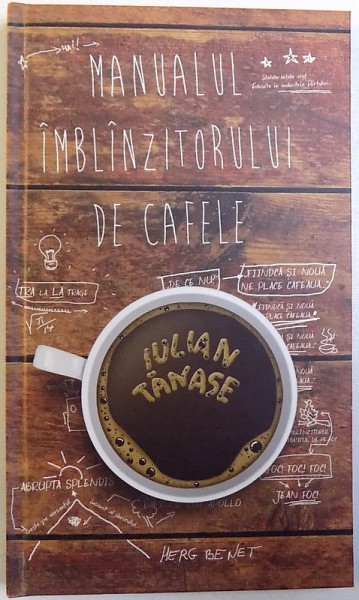 ui!
MANUALUL
ÎMBLÎNZITORULUI
DE CAFELE
TRA LA LA TRAGE
DE CE NU?
FIINDCĂ ȘI NOUĂ
NE PLACE CAFEAUA...
FIINDCĂ ȘI NOUĂ
PLACE CAFEAUA...
IULIAN
TĂNASE
ABRUPTA SPLENDIS
APOLLO
FOC! FOC! FOC!
JEAN FOC!
HERG BENET